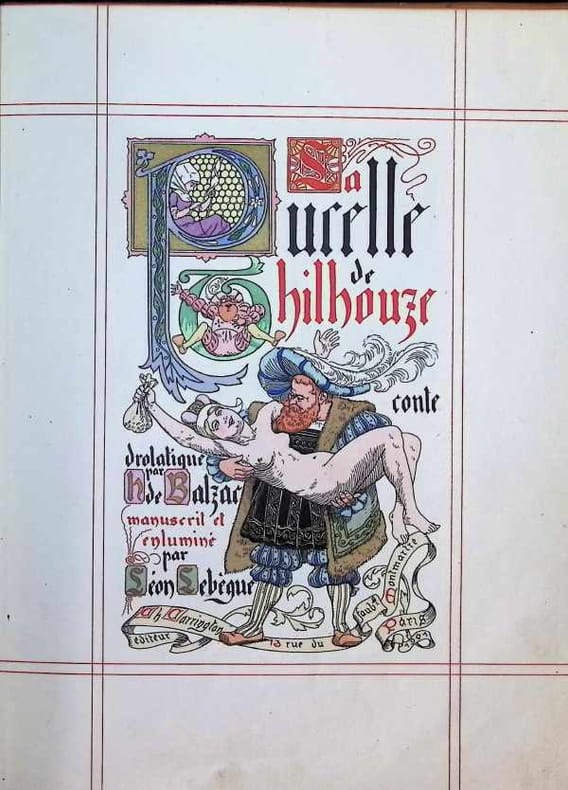 La
Pucelle
de
Thilhouze
conte
drolatique
par
H de Balzac
manuscrit et
enluminé
par
Léon Lebègue
Ch Carrington
éditeur
13 rue du
faubg Montmartre
Paris